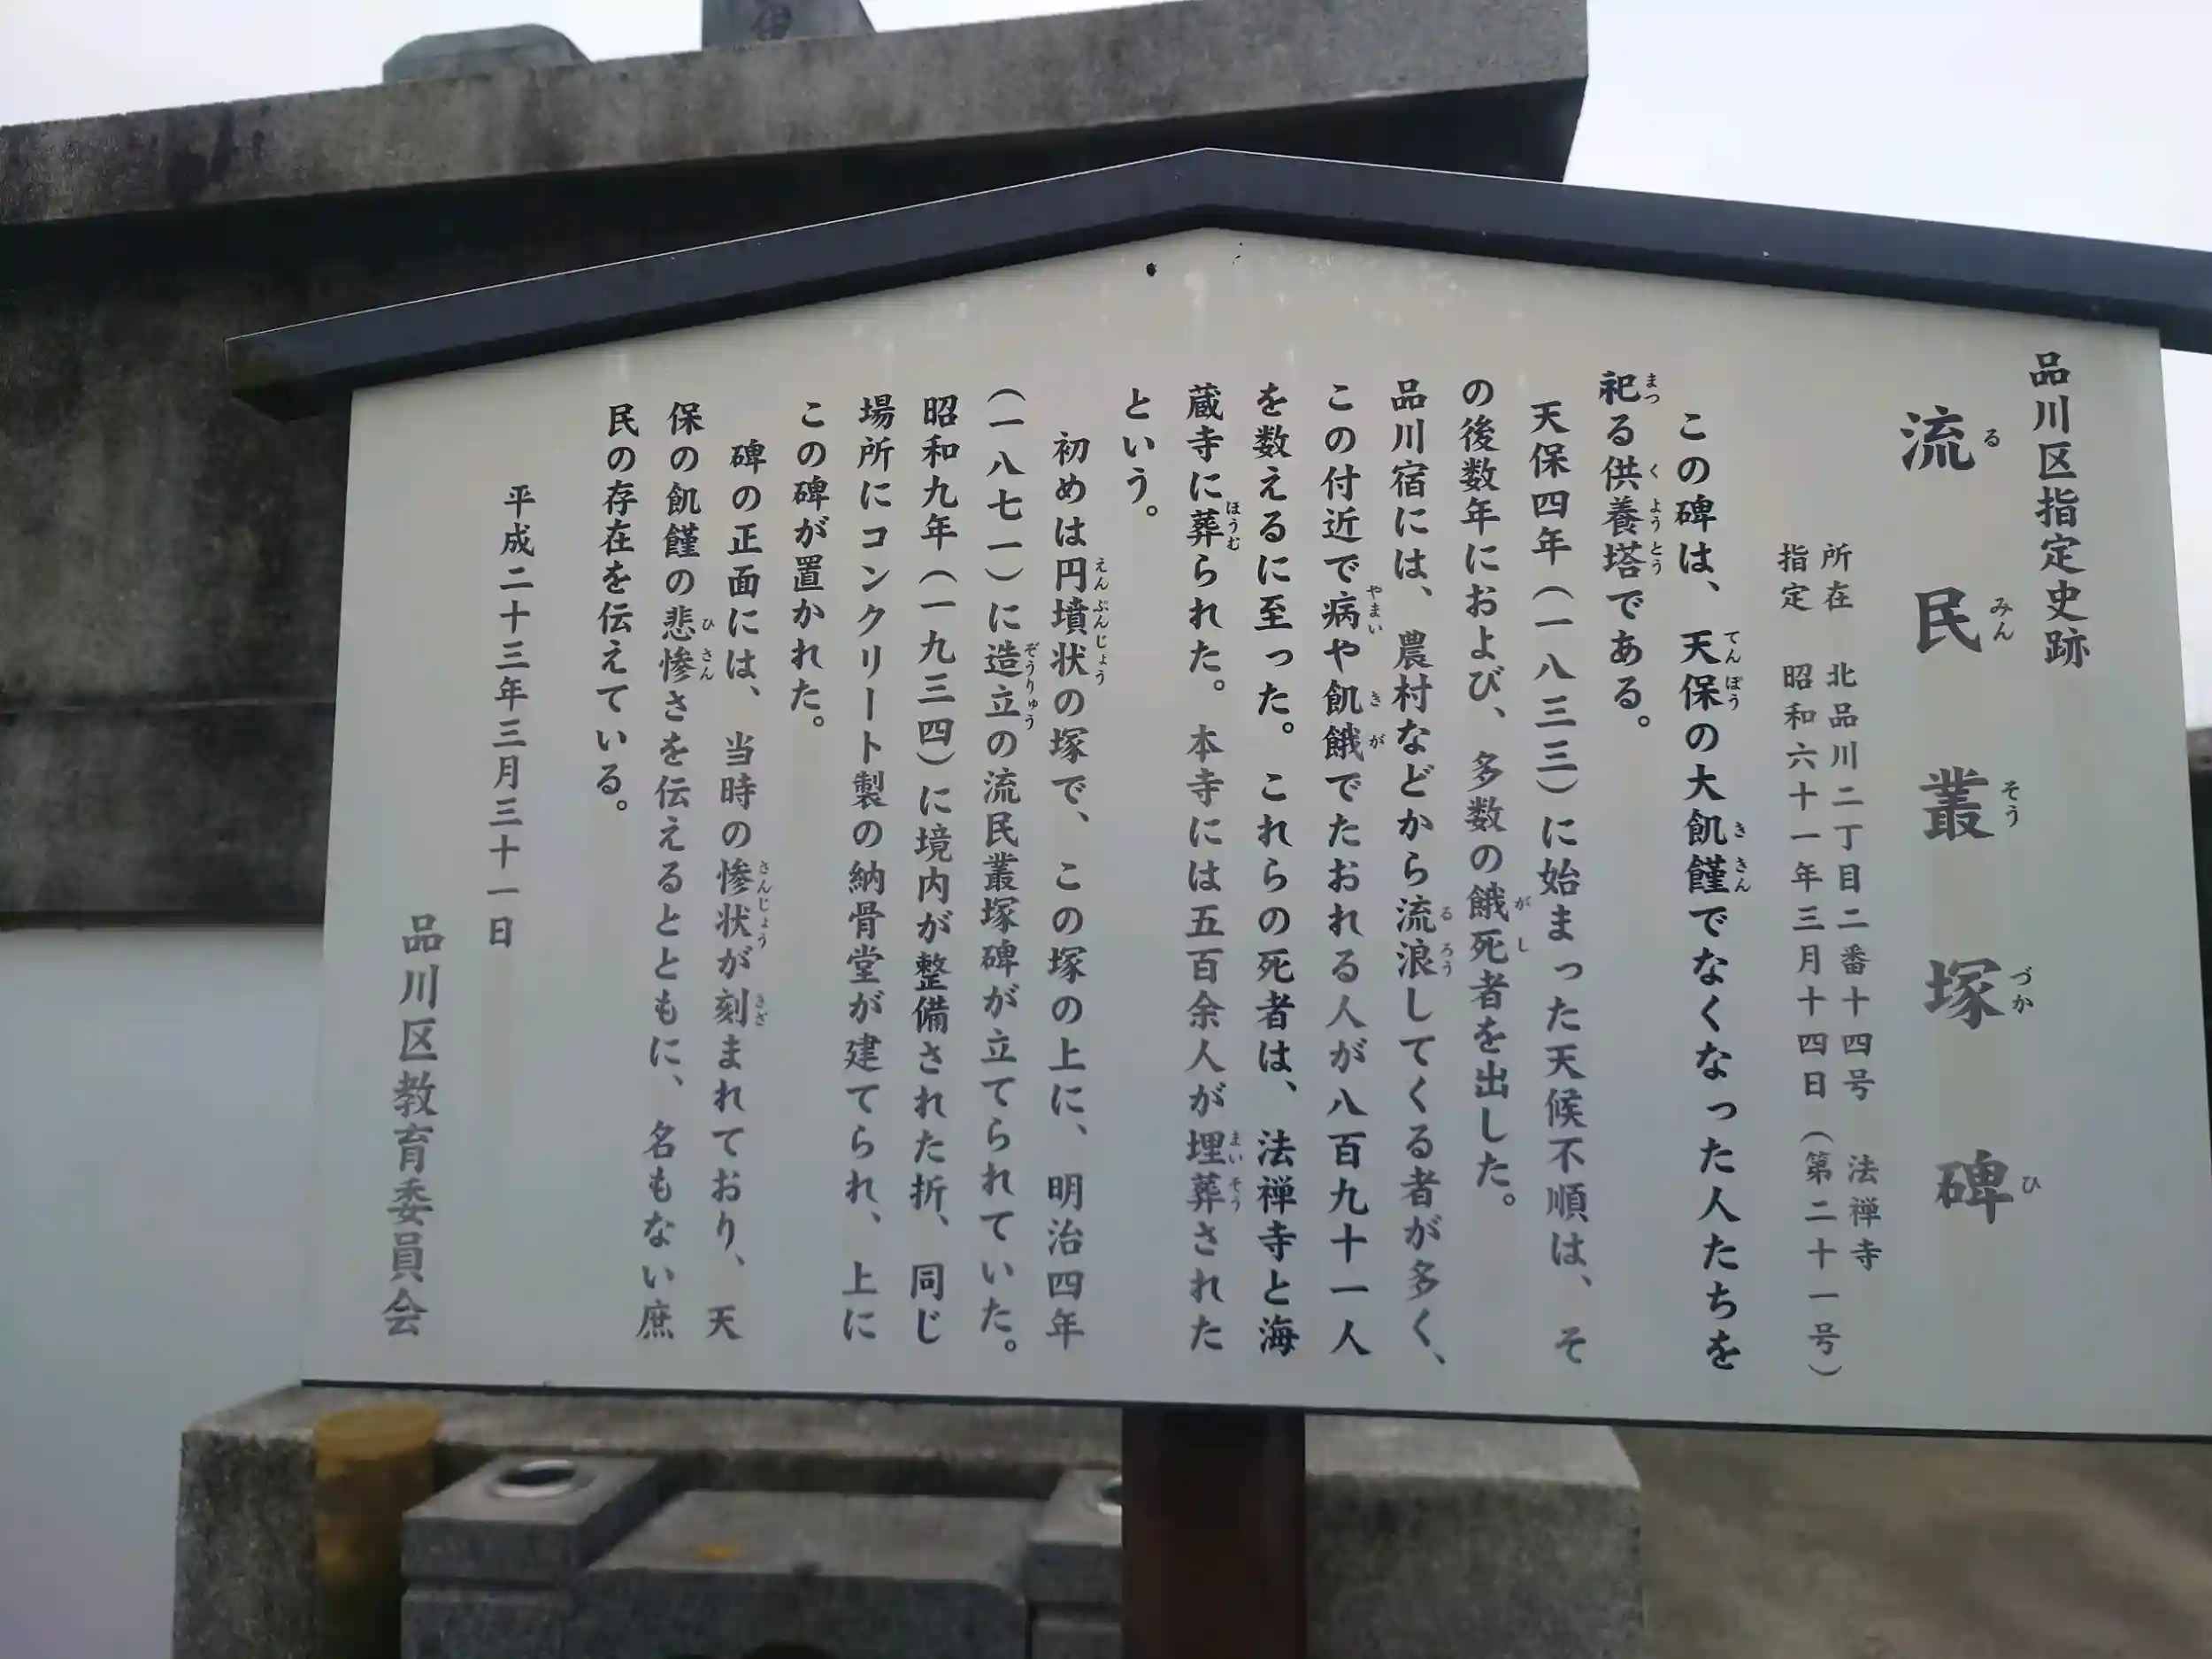 品川区指定史跡
流民叢塚碑
所在 北品川二丁目二番十四号 法禅寺
指定 昭和六十一年三月十四日（第二十一号）
この碑は、天保の大飢饉でなくなった人たちを
祀る供養塔である。
天保四年（一八三三）に始まった天候不順は、そ
の後数年におよび、多数の餓死者を出した。
品川宿には、農村などから流浪してくる者が多く、
この付近で病や飢餓でたおれる人が八百九十一人
を数えるに至った。これらの死者は、法禅寺と海
蔵寺に葬られた。本寺には五百余人が埋葬された
という。
初めは円墳状の塚で、この塚の上に、明治四年
（一八七一）に造立の流民叢塚碑が立てられていた。
昭和九年（一九三四）に境内が整備された折、同じ
場所にコンクリート製の納骨堂が建てられ、上に
この碑が置かれた。
碑の正面には、当時の惨状が刻まれており、天
保の飢饉の悲惨さを伝えるとともに、名もない庶
民の存在を伝えている。
平成二十三年三月三十一日
品川区教育委員会